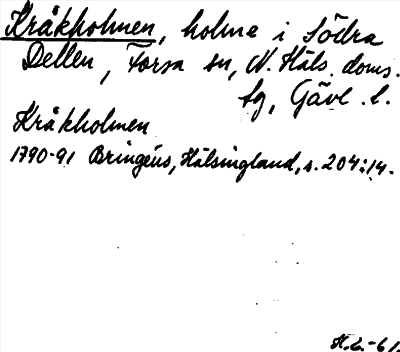 Kråkholmen, holme i Södra
Dellen, Forsa sn, N. Häls. doms.
sg, Gävl. l.
Kråkholmen
1790-91 Bringéus, Hälsingland, s. 204:14.
H.L.-61.